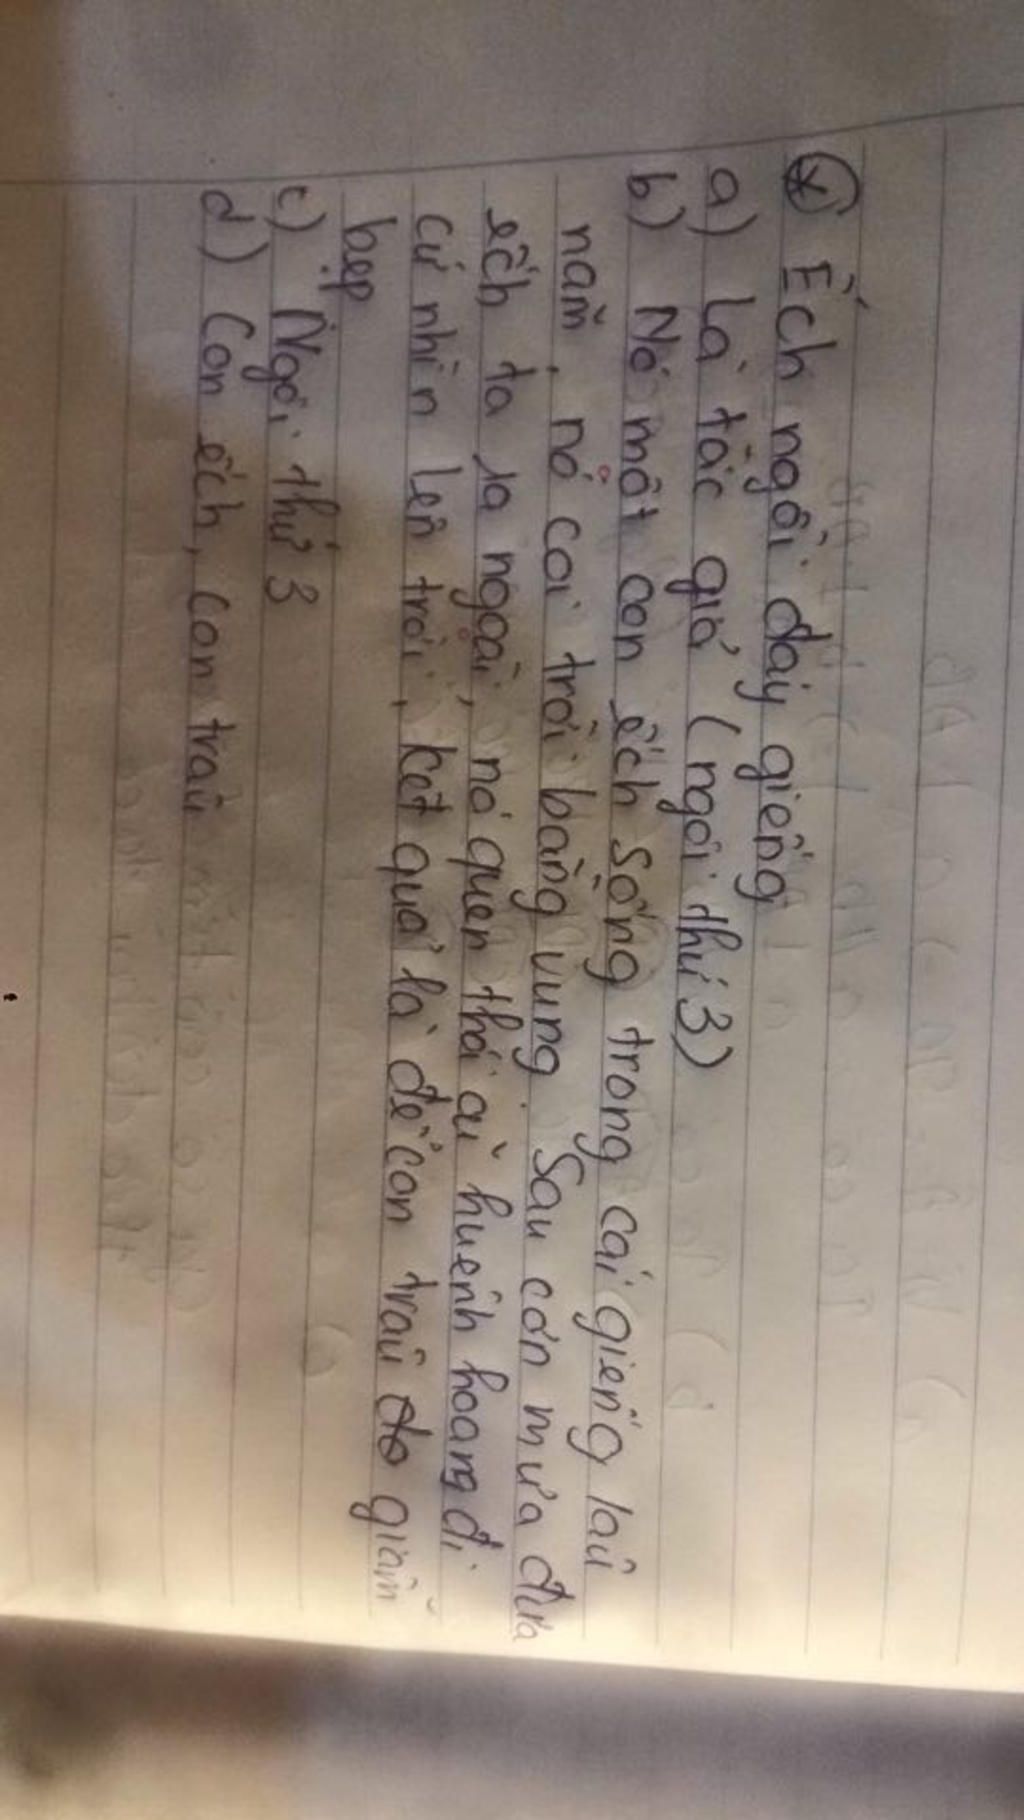 Ếch ngồi đáy giếng
a) Là tác giả (ngôi thứ 3)
b) Nó một con ếch sống trong cái giếng lâu
năm, nó coi trời bằng vung Sau cơn mưa đưa
ếch ta ra ngoài, nó quen thói cũ huênh hoang đi
cứ nhìn lên trời, kết quả là để con trâu đo giẫm
bẹp
c) Ngôi thứ 3
d) Con ếch, con trâu